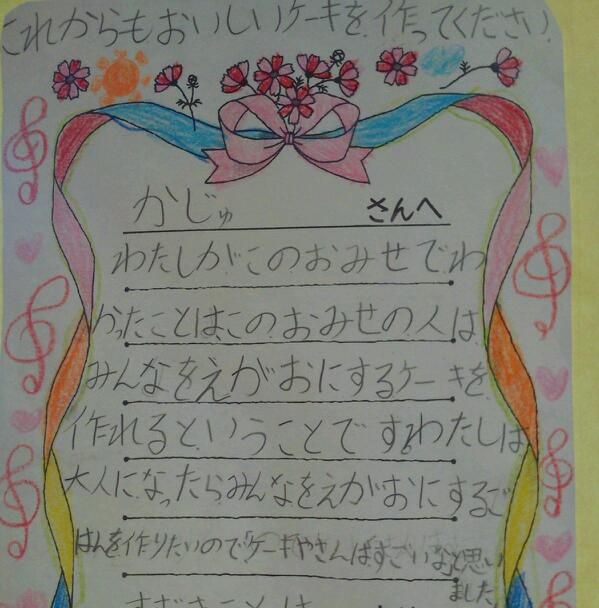 これからもおいしいケーキを作ってください
かじゅ さんへ
わたしがこのおみせでわ
かったことは、このおみせの人は
みんなをえがおにするケーキを
作れるということです。わたしは
大人になったらみんなをえがおにするご
はんを作りたいので「ケーキやさんはすごいな」と思い
ました。